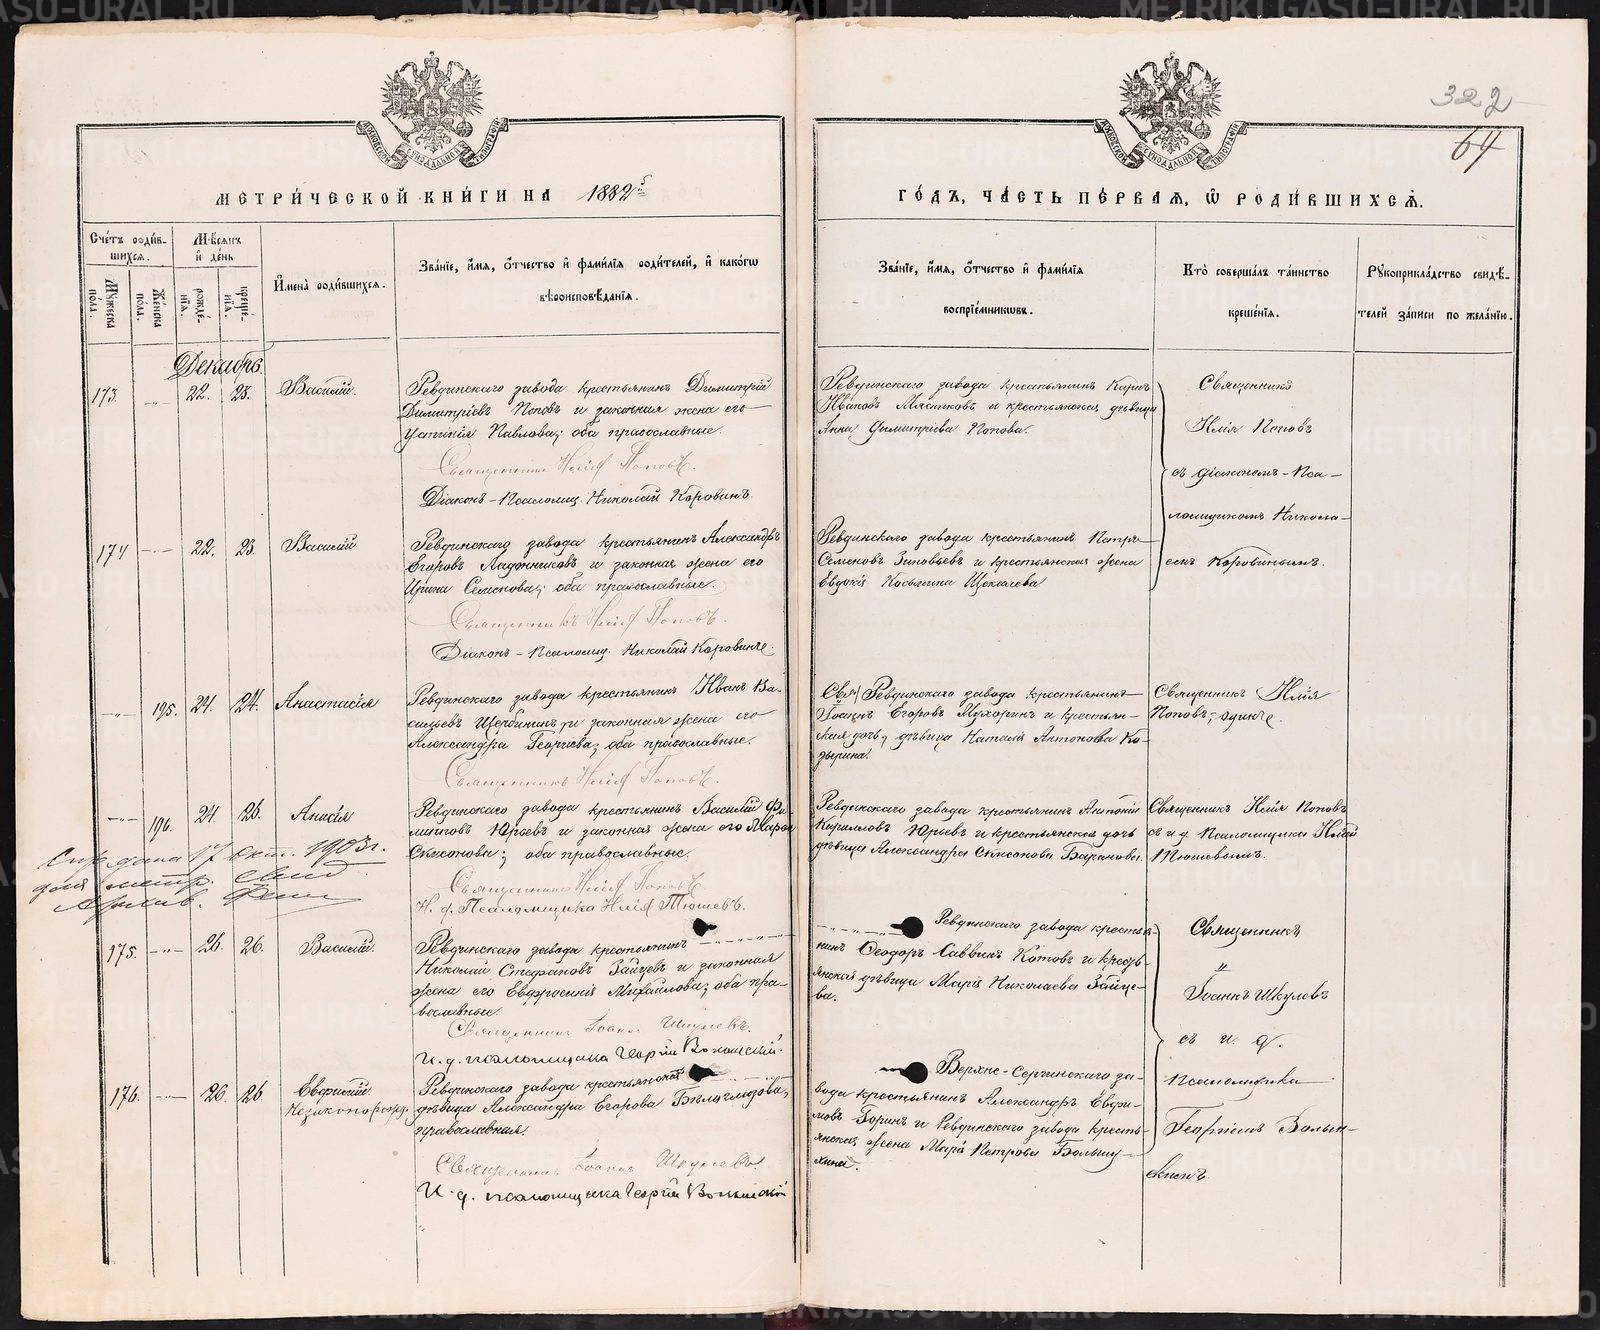 322
64
МОСКОВСКОЙ СУНОДАЛЬНОЙ ТИПОГРАФІИ
МОСКОВСКОЙ СУНОДАЛЬНОЙ ТИПОГРАФІИ
МЕТРИ́ЧЕСКОЙ КНИ́ГИ НА 1882й
ГО́ДЪ, ЧА́СТЬ ПЕ́РВАѦ, Ѽ РОДИ́ВШИХСѦ.
Сче́тъ роди́в-
шихсѧ.
Мѣсѧцъ
и҆ де́нь
Му́жеска
по́ла.
Же́нска
по́ла.
рожде́-
нїѧ.
креще́-
нїѧ.
И҆мена̀ роди́вшихсѧ.
Зва́нїе, и҆́мѧ, ѻ҆́тчество и҆ фами́лїѧ роди́телей, и҆ како́гѡ
вѣроисповѣ́данїѧ.
Зва́нїе, и҆́мѧ, ѻ҆́тчество и҆ фами́лїѧ
воспрїе́мникѡвъ.
Кто̀ соверша́лъ та́инство
креще́нїѧ.
Рꙋкоприкла́дство свидѣ́-
телей за́писи по жела́нїю.
Декабрь
173. 22. 23. Василій.
Ревдинскаго завода крестьянинъ Димитрій
Димитріевъ Поповъ и законная жена его
Устинія Павлова; оба православные.
Священникъ Илія Поповъ.
Діаконъ-Псаломщ. Николай Коровинъ.
Ревдинскаго завода крестьянинъ Карпъ
Ивановъ Мясниковъ и крестьянская дѣвица
Анна Димитріева Попова.
Священникъ
Илія Поповъ
съ діакономъ-Пса-
ломщикомъ Никола-
емъ Коровинымъ.
174 22. 23. Василій
Ревдинскаго завода крестьянинъ Александръ
Егоровъ Ладонниковъ и законная жена его
Ирина Семенова; оба православные.
Священникъ Илія Поповъ.
Діаконъ-Псаломщ. Николай Коровинъ.
Ревдинскаго завода крестьянинъ Петръ
Семеновъ Зиновьевъ и крестьянская жена
Евдокія Косьмина Щекалева
195. 24. 24. Анастасія
Ревдинскаго завода крестьянинъ Иванъ Ва-
сильевъ Щербининъ и законная жена его
Александра Георгіева; оба православные.
Священникъ Илія Поповъ.
Ревдинскаго завода крестьянинъ
Іоаннъ Егоровъ Мухоринъ и крестьян-
ская дочь, дѣвица Наталія Антонова Ко-
зырина.
Священникъ Илія
Поповъ, одинъ.
196. 24 26. Анисія
Ревдинскаго завода крестьянинъ Василій Фи-
липповъ Юрьевъ и законная жена его Марѳа
Симеонова; оба православные.
Священникъ Илія Поповъ.
И. д. Псаломщика Илія Тюшевъ.
Ревдинскаго завода крестьянинъ Антоній
Кирилловъ Юрьевъ и крестьянская дочь
дѣвица Александра Симеонова Баранова.
Священникъ Илія Поповъ
съ и д. Псаломщика Иліей
Тюшевымъ.
дана 17 окт. 1903 г.
метр. свид.
175. 26. 26. Василій.
Ревдинскаго завода крестьянинъ
Николай Стефановъ Зайцевъ и законная
жена его Евфросинія Михайлова; оба пра-
вославные.
Священникъ Іоаннъ Шкулевъ.
И. д. псаломщика Георгій Волынскій.
Ревдинскаго завода крестья-
нинъ Ѳеодоръ Саввинъ Котовъ и кресть-
янская дѣвица Марія Николаева Зайце-
ва.
Священникъ
Іоаннъ Шкулевъ
съ и. д.
Псаломщика
Георгіемъ Волын-
скимъ.
176. 26. 26 Евфимій
Незаконорожд.
Ревдинскаго завода крестьянская
дѣвица Александра Егорова Бѣлоглазова,
православная.
Священникъ Іоаннъ Шкулевъ.
И. д. псаломщика Георгій Волынскій
Верхне-Сергинскаго за-
вода крестьянинъ Александръ Евфи-
мовъ Горинъ и Ревдинскаго завода кресть-
янская жена Марія Петрова